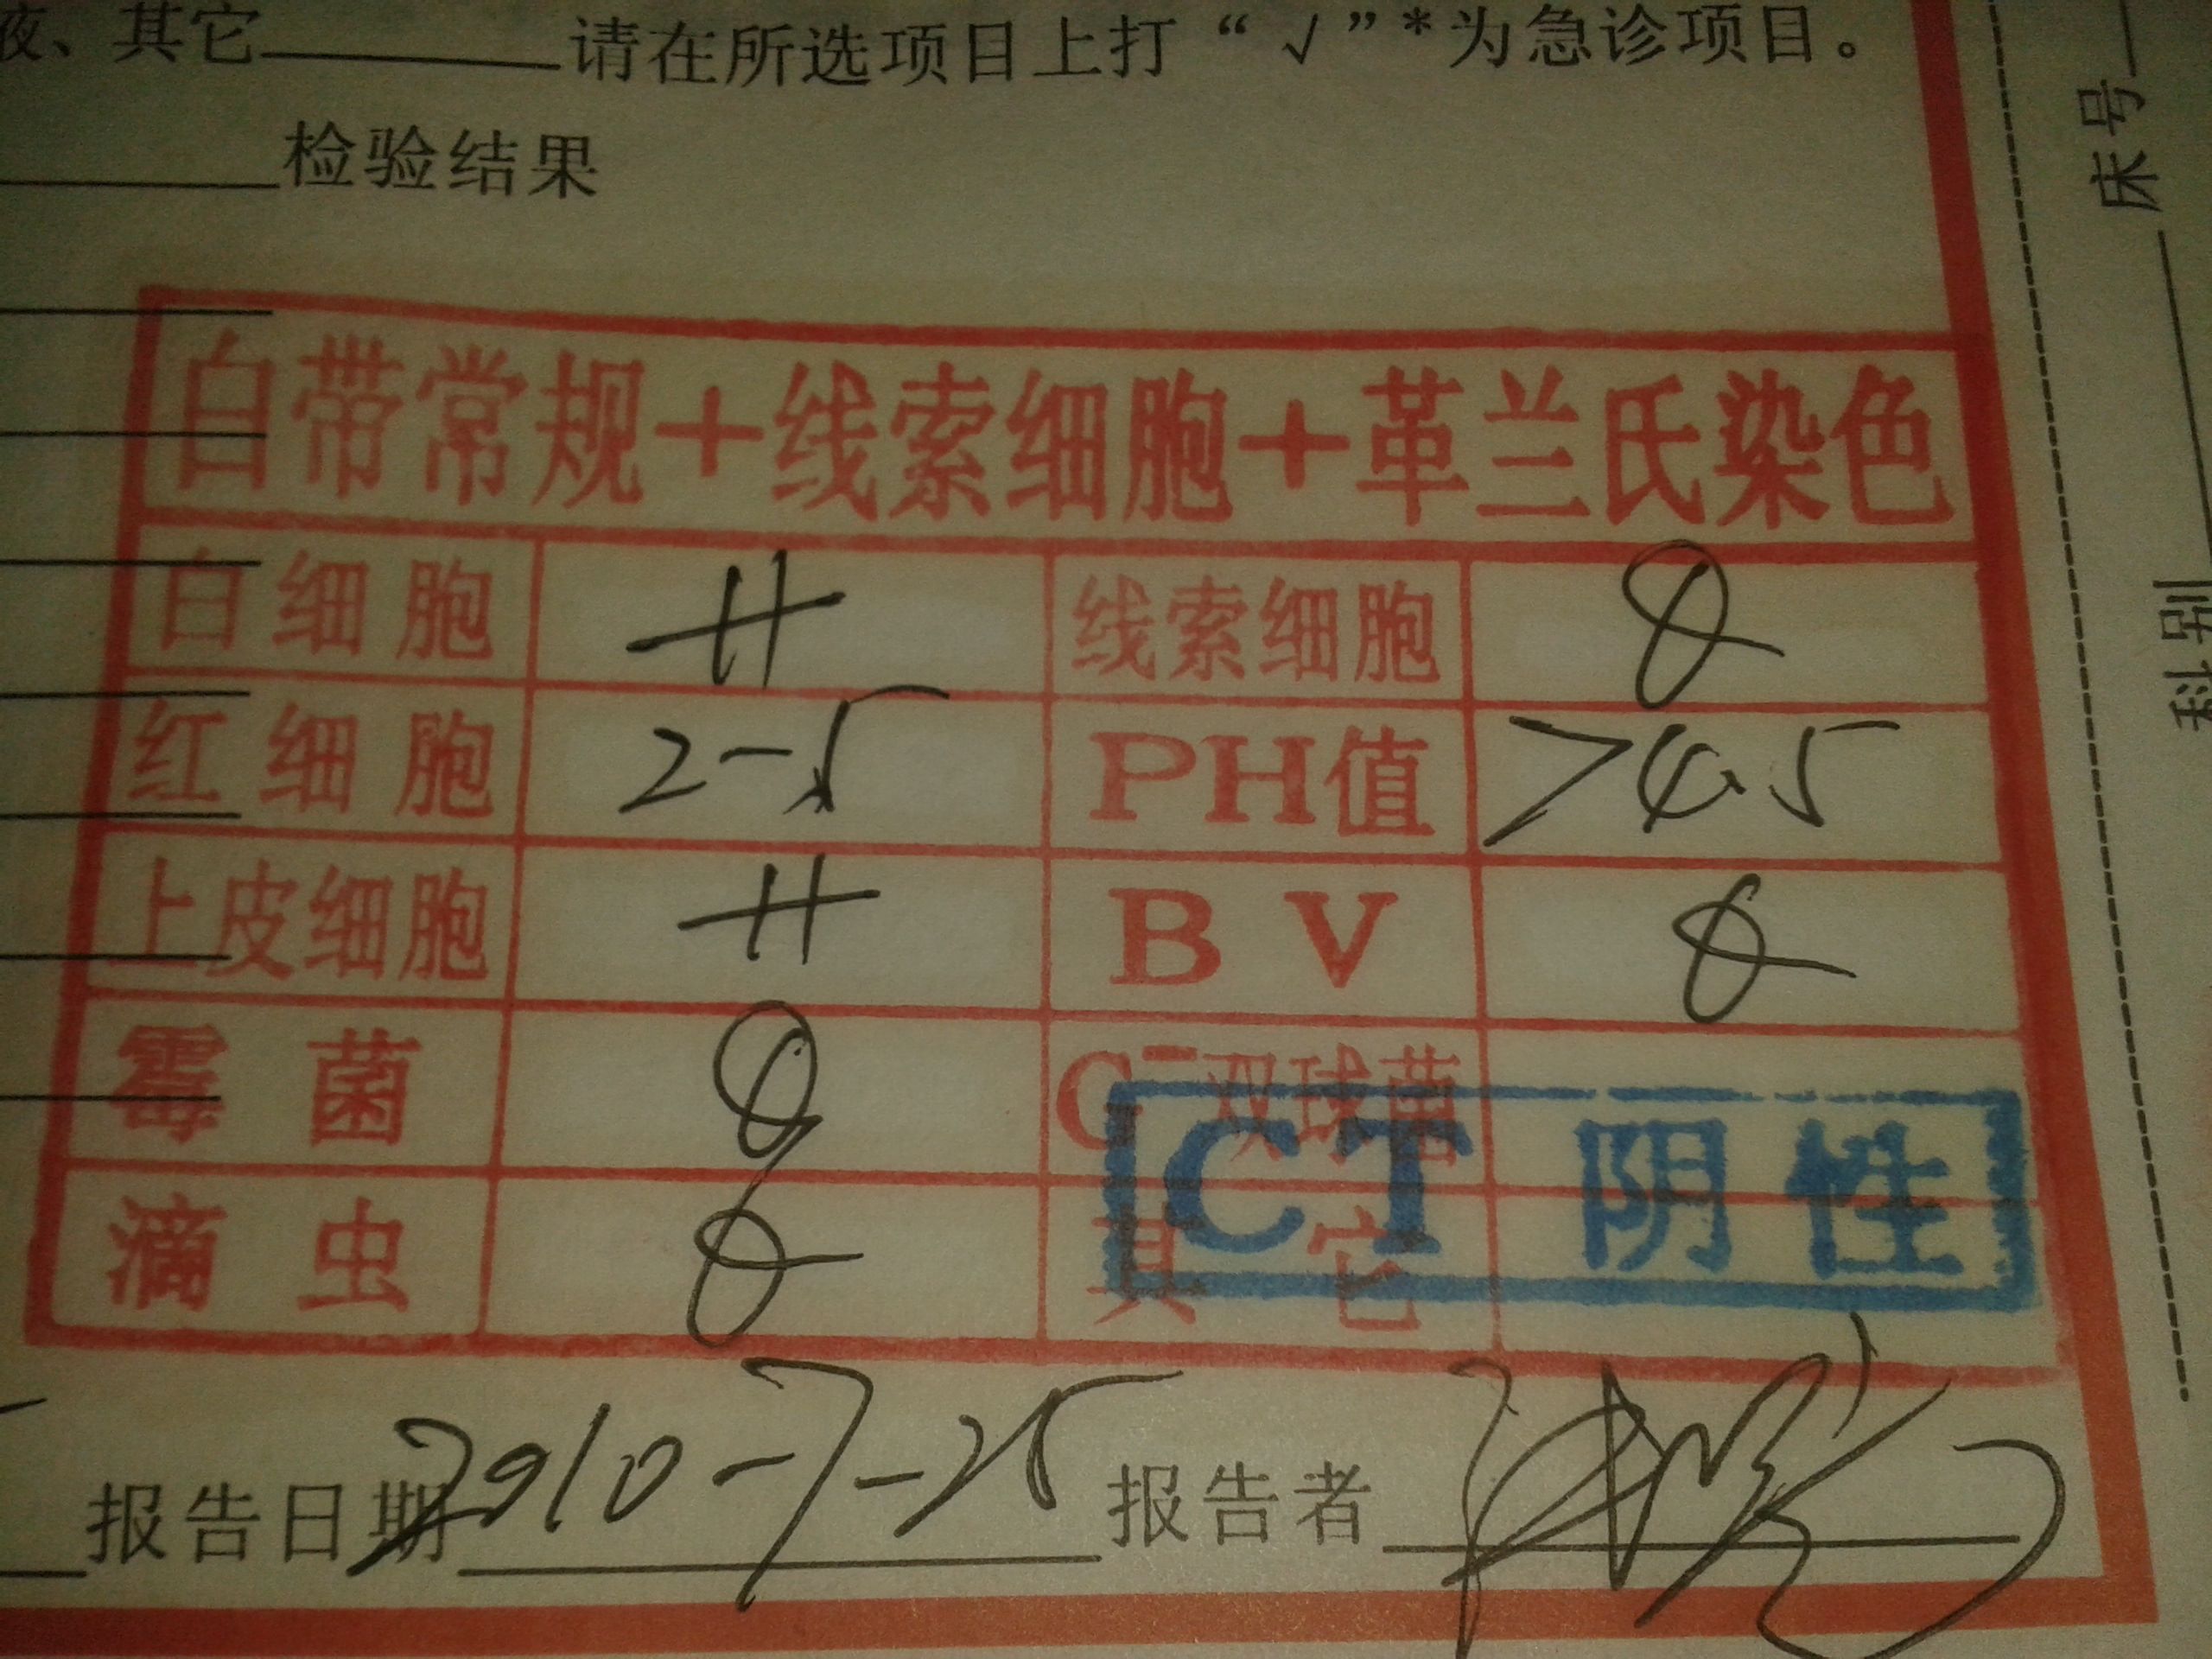 液、其它______请在所选项目上打“√”*为急诊项目。
检验结果
白带常规+线索细胞+革兰氏染色
白细胞 ++ 线索细胞 0
红细胞 2-5 PH值 >4.5
上皮细胞 ++ BV 0
霉菌 0 G⁻双球菌
滴虫 0 其它
CT 阴性
报告日期 2010-7-25 报告者
床号
科别